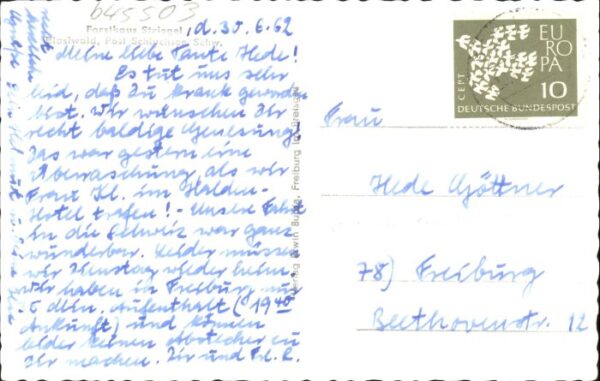 645503
Forsthaus Striegel
Blasiwald, Post Schluchsee Schw.
,d. 30.6.62
Meine liebe Tante Hede!
Es tut uns sehr
leid, daß Du krank geworden
bist. Wir wünschen Dir
recht baldige Genesung!
Das war gestern eine
Überraschung, als wir
Frau Kl. im Halden-
Hotel trafen! - Unsere Fahrt
in die Schweiz war ganz
wunderbar. Leider müssen
wir Dienstag wieder heim
wir haben in Freiburg nur
Aufenthalt (19
Ankunft) und können
leider keinen Abstecher zu
Dir machen. Dir und
Verlag Erwin Burda, Freiburg im Breisgau
CEPT
EUROPA
10
DEUTSCHE BUNDESPOST
Frau
Hede Göttner
78) Freiburg
Beethovenstr. 12